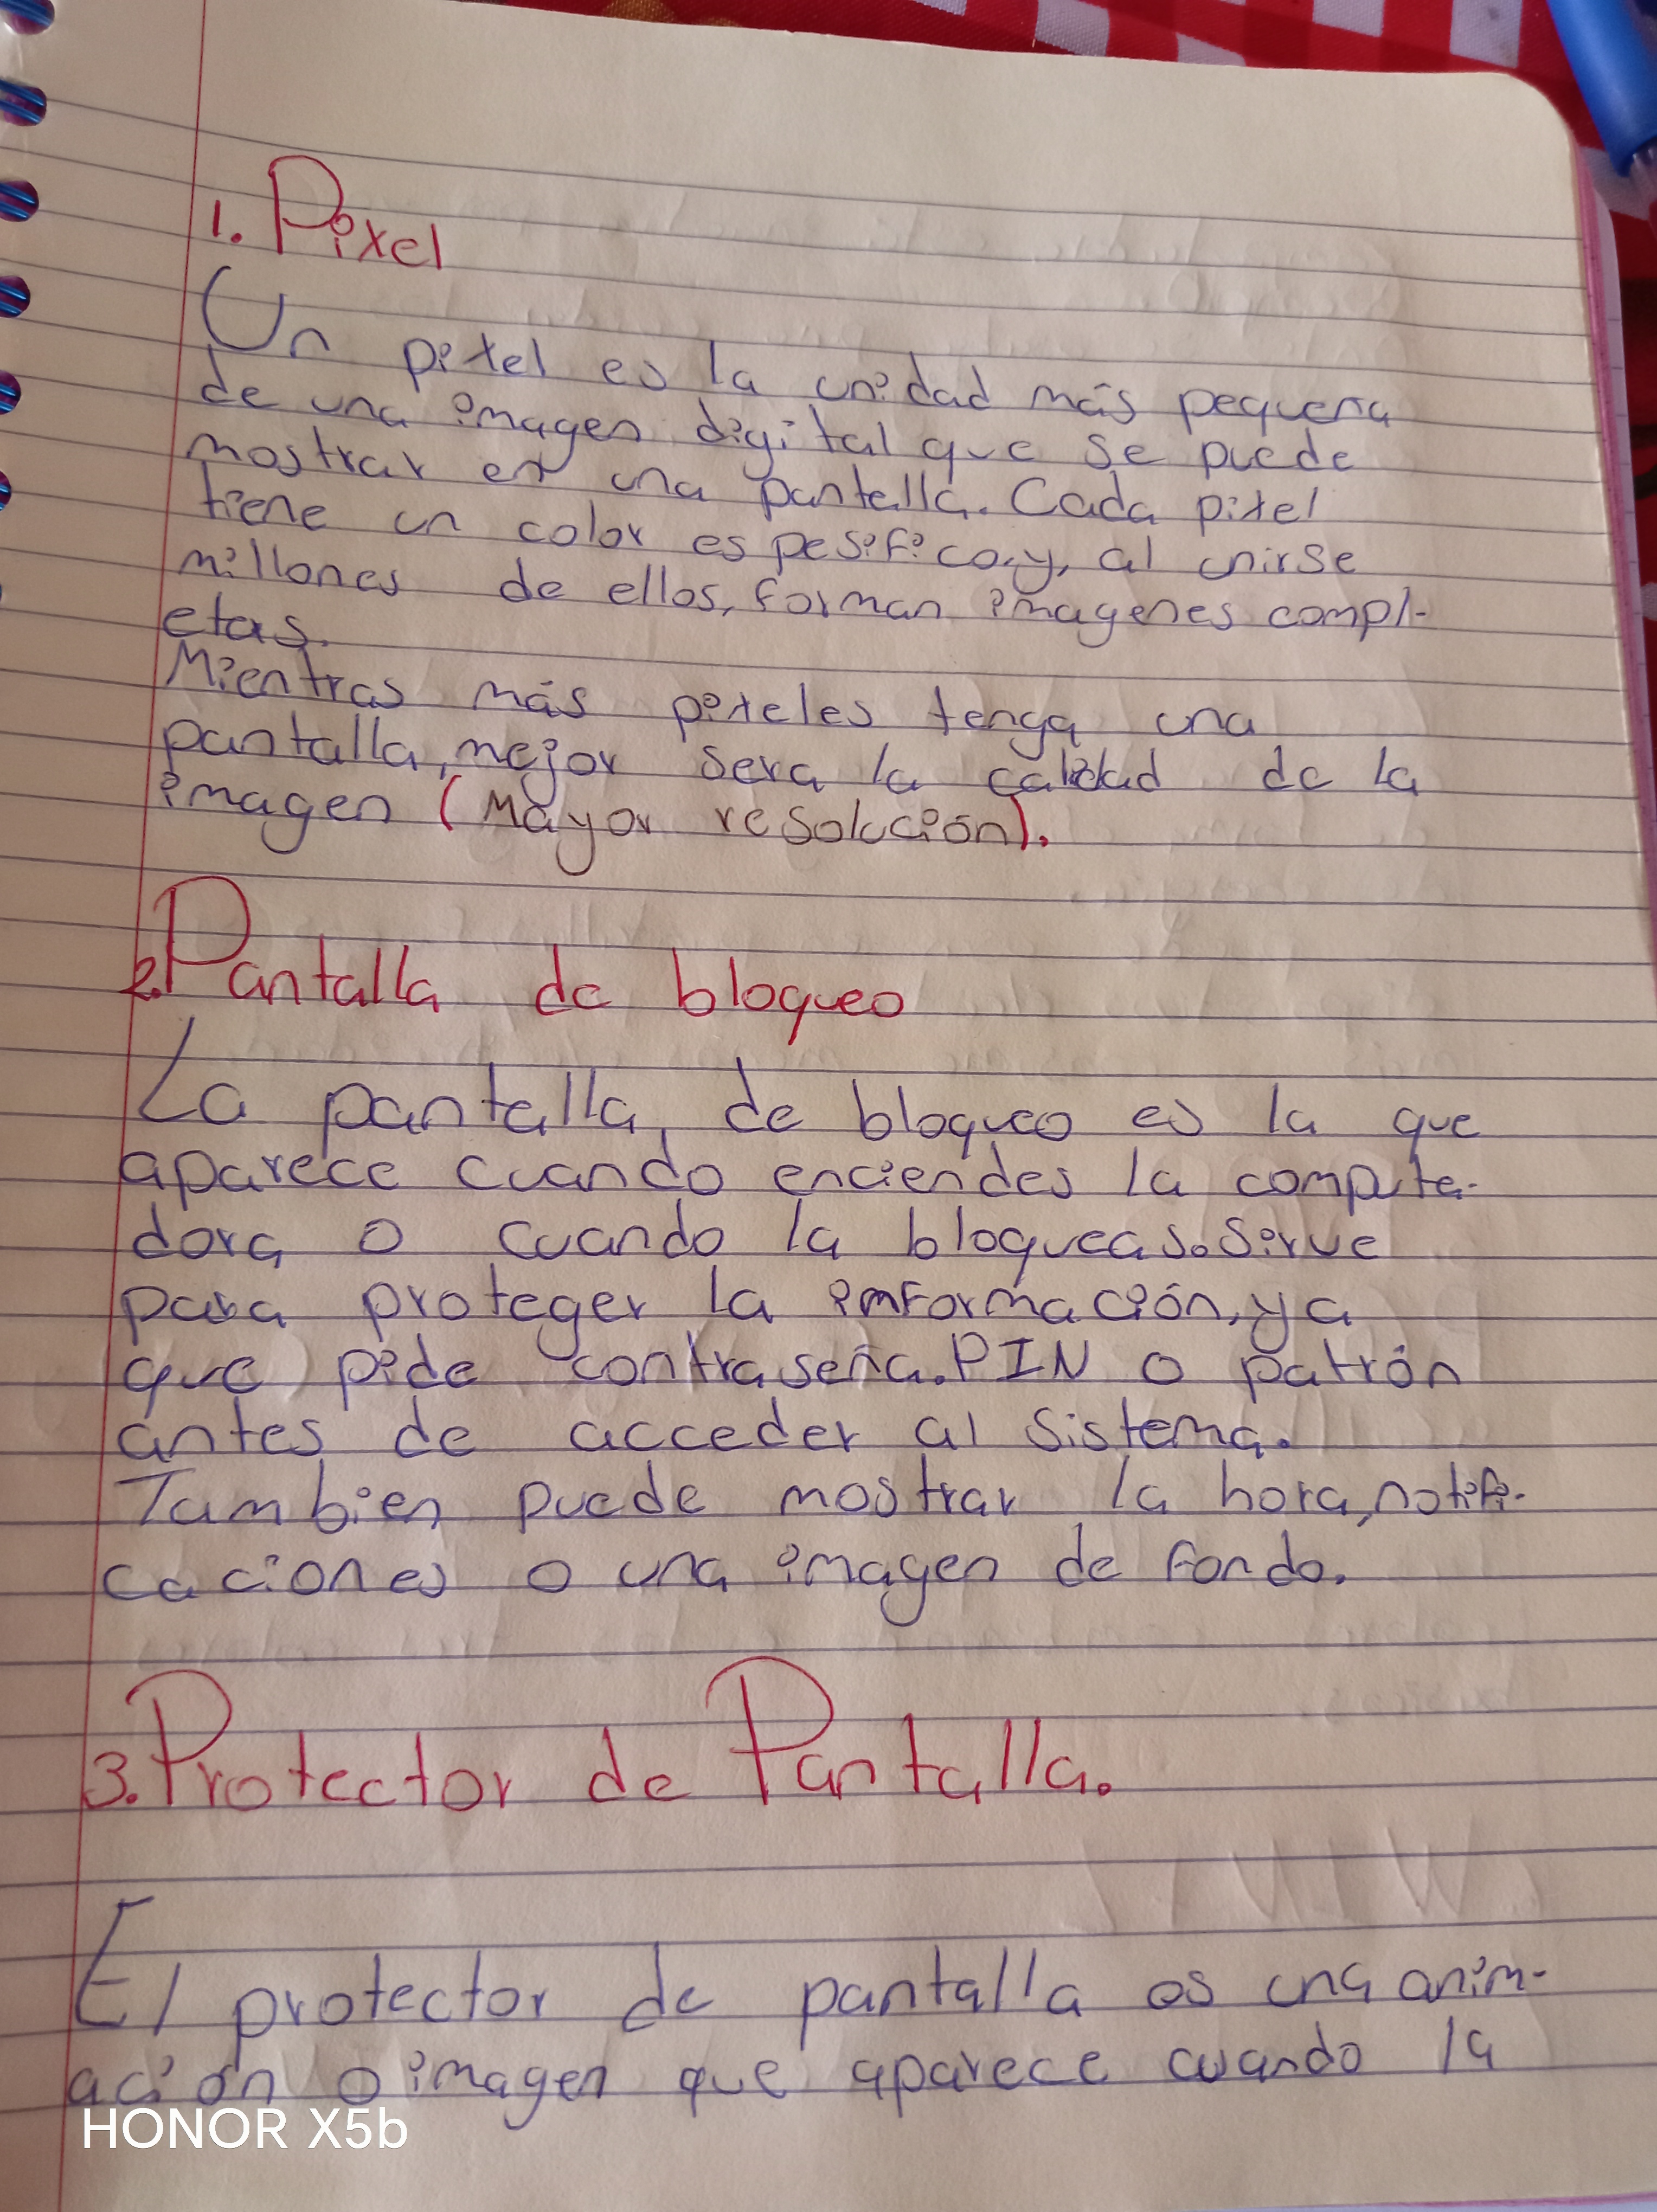 1. Pixel
Un pixel es la unidad más pequeña
de una imagen digital que se puede
mostrar en una pantalla. Cada pixel
tiene un color espesifico, y, al unirse
millones de ellos, forman imagenes compl-
etas.
Mientras más pixeles tenga una
pantalla, mejor sera la calidad de la
imagen (Mayor resolución).
2. Pantalla de bloqueo
La pantalla de bloqueo es la que
aparece cuando enciendes la computa-
dora o cuando la bloqueas. Sirve
para proteger la imformación, ya
que pide contraseña. PIN o patrón
antes de acceder al sistema.
Tambien puede mostrar la hora, notifi-
caciones o una imagen de fondo.
3. Protector de Pantalla.
El protector de pantalla es una anim-
ación o imagen que aparece cuando la
HONOR X5b